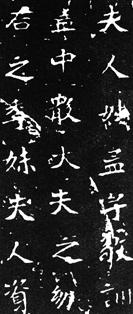 夫人姓孟字敬訓
蓋中散大夫之幼
君之季妹夫人資